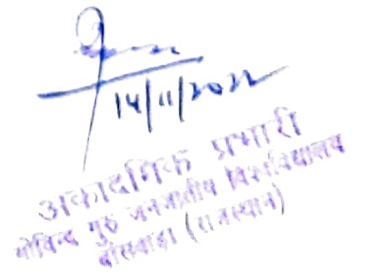 14/11/2022
अकादमिक प्रभारी
गोविन्द गुरु जनजातीय विश्वविद्यालय
बाँसवाड़ा (राजस्थान)